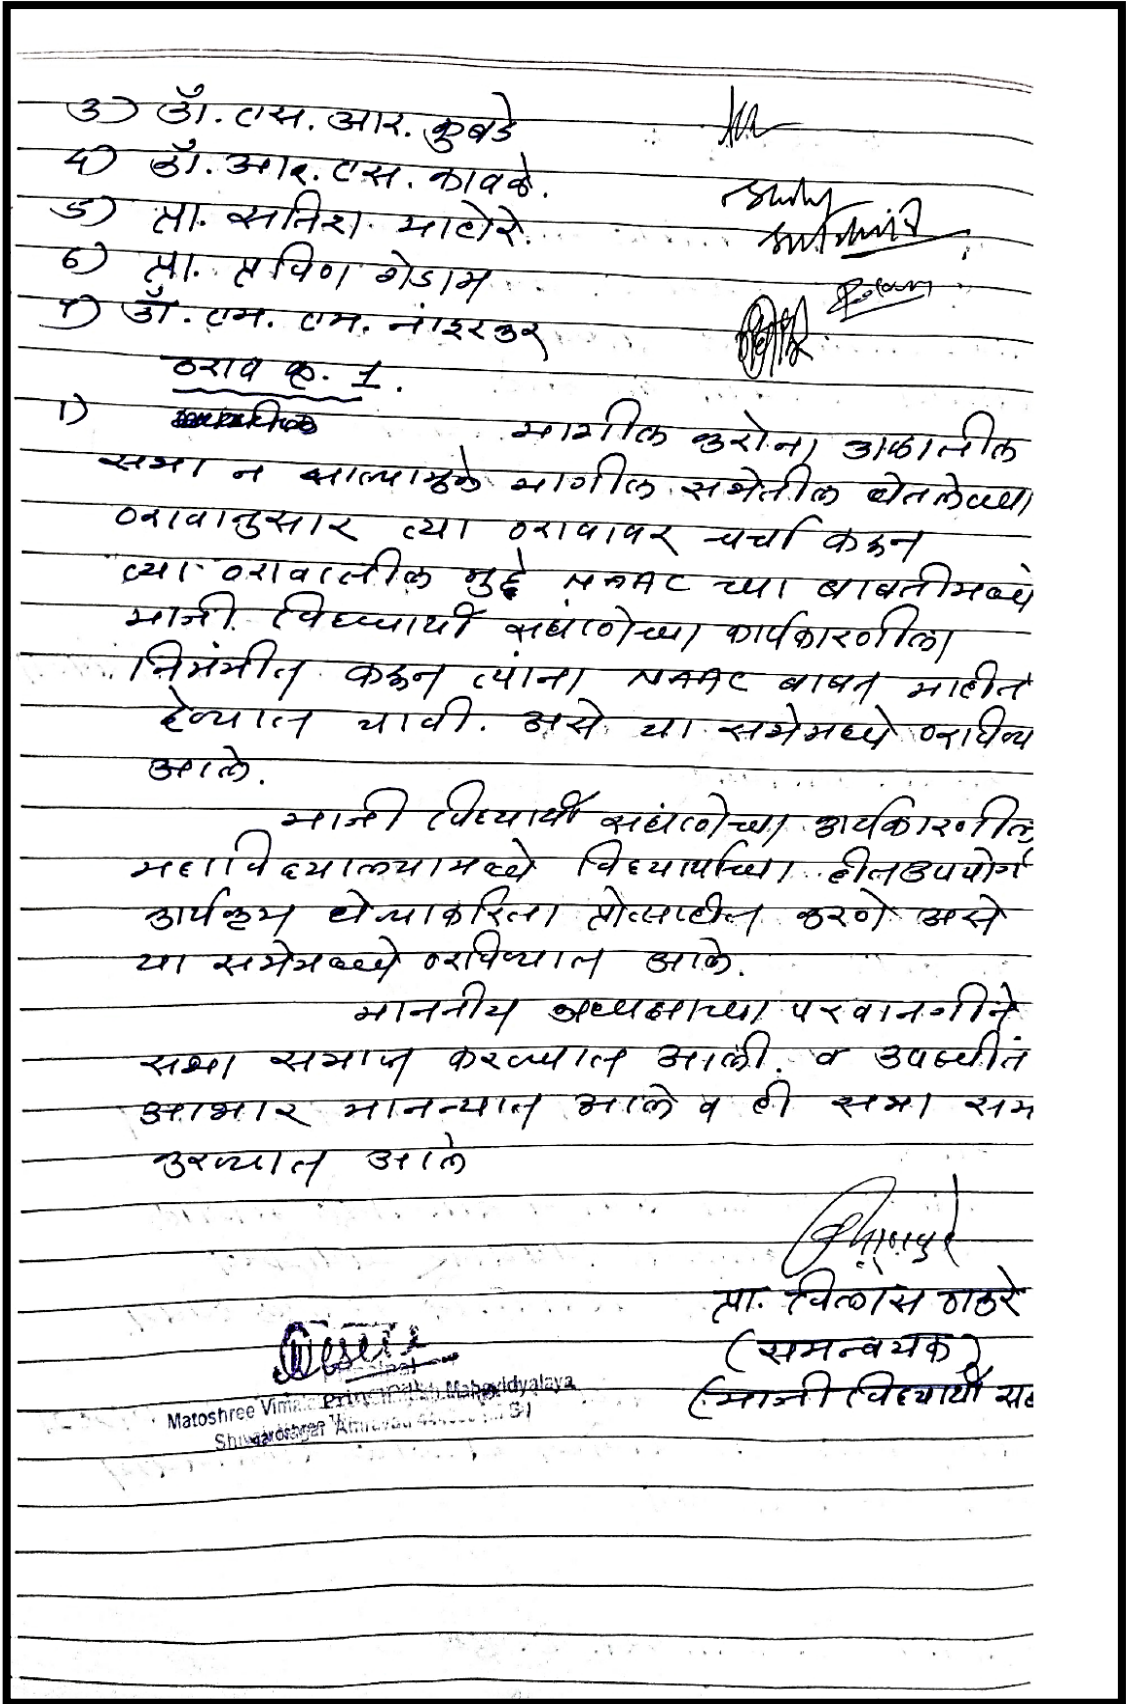 3) डॉ. एस. आर. कुबडे
4) डॉ. आर. एस. कावळे.
5) प्रा. सतिश माहोरे.
6) प्रा. प्रविण गेडाम
7) डॉ. एम. एम.
ठराव क्र. 1.
1) मागील कोरोना काळातील
सभा न झाल्यामुळे मागील सभेतील घेतलेल्या
ठरावानुसार त्या ठरावावर चर्चा करून
त्या ठरावातील मुद्दे NAAC च्या बाबतीमध्ये
माजी विद्यार्थी संघटनेच्या कार्यकारणीला
निमंत्रीत करून त्यांना NAAC बाबत माहीत
देण्यात यावी. असे या सभेमध्ये ठरविण्य
आले.
माजी विद्यार्थी संघटनेच्या कार्यकारणीत
महाविद्यालयामध्ये विद्यार्थ्याच्या हीतउपयोगी
कार्यक्रम घेण्याकरिता प्रोत्साहीत करणे असे
या सभेमध्ये ठरविण्यात आले.
माननीय अध्यक्षाच्या परवानगीने
सभा समाप्त करण्यात आली. व उपस्थीतं
आभार मानन्यात आले व ही सभा सम
करण्यात आले
प्रा. विलास ठाकरे
(समन्वयक)
(माजी विद्यार्थी सं
Principal
Matoshree Mahavidyalaya